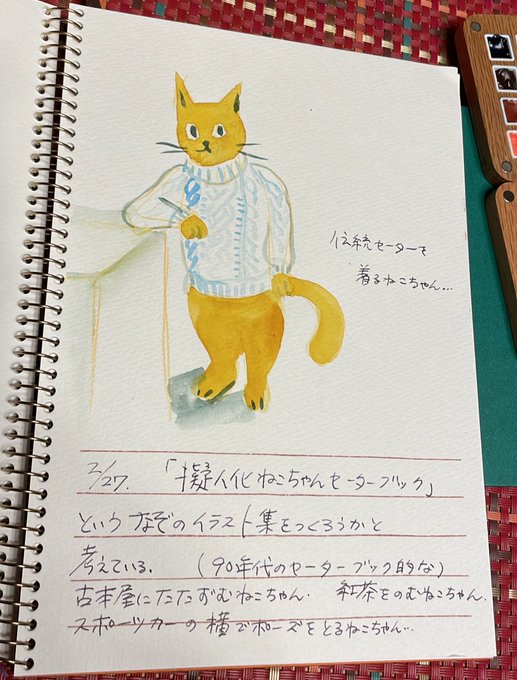 伝統セーターを
着るねこちゃん…
2/27. 「擬人化ねこちゃんセーターブック」
というなぞのイラスト集をつくろうかと
考えている. (90年代のセーターブック的な)
古本屋にたたずむねこちゃん. 紅茶をのむねこちゃん.
スポーツカーの横でポーズをとるねこちゃん…